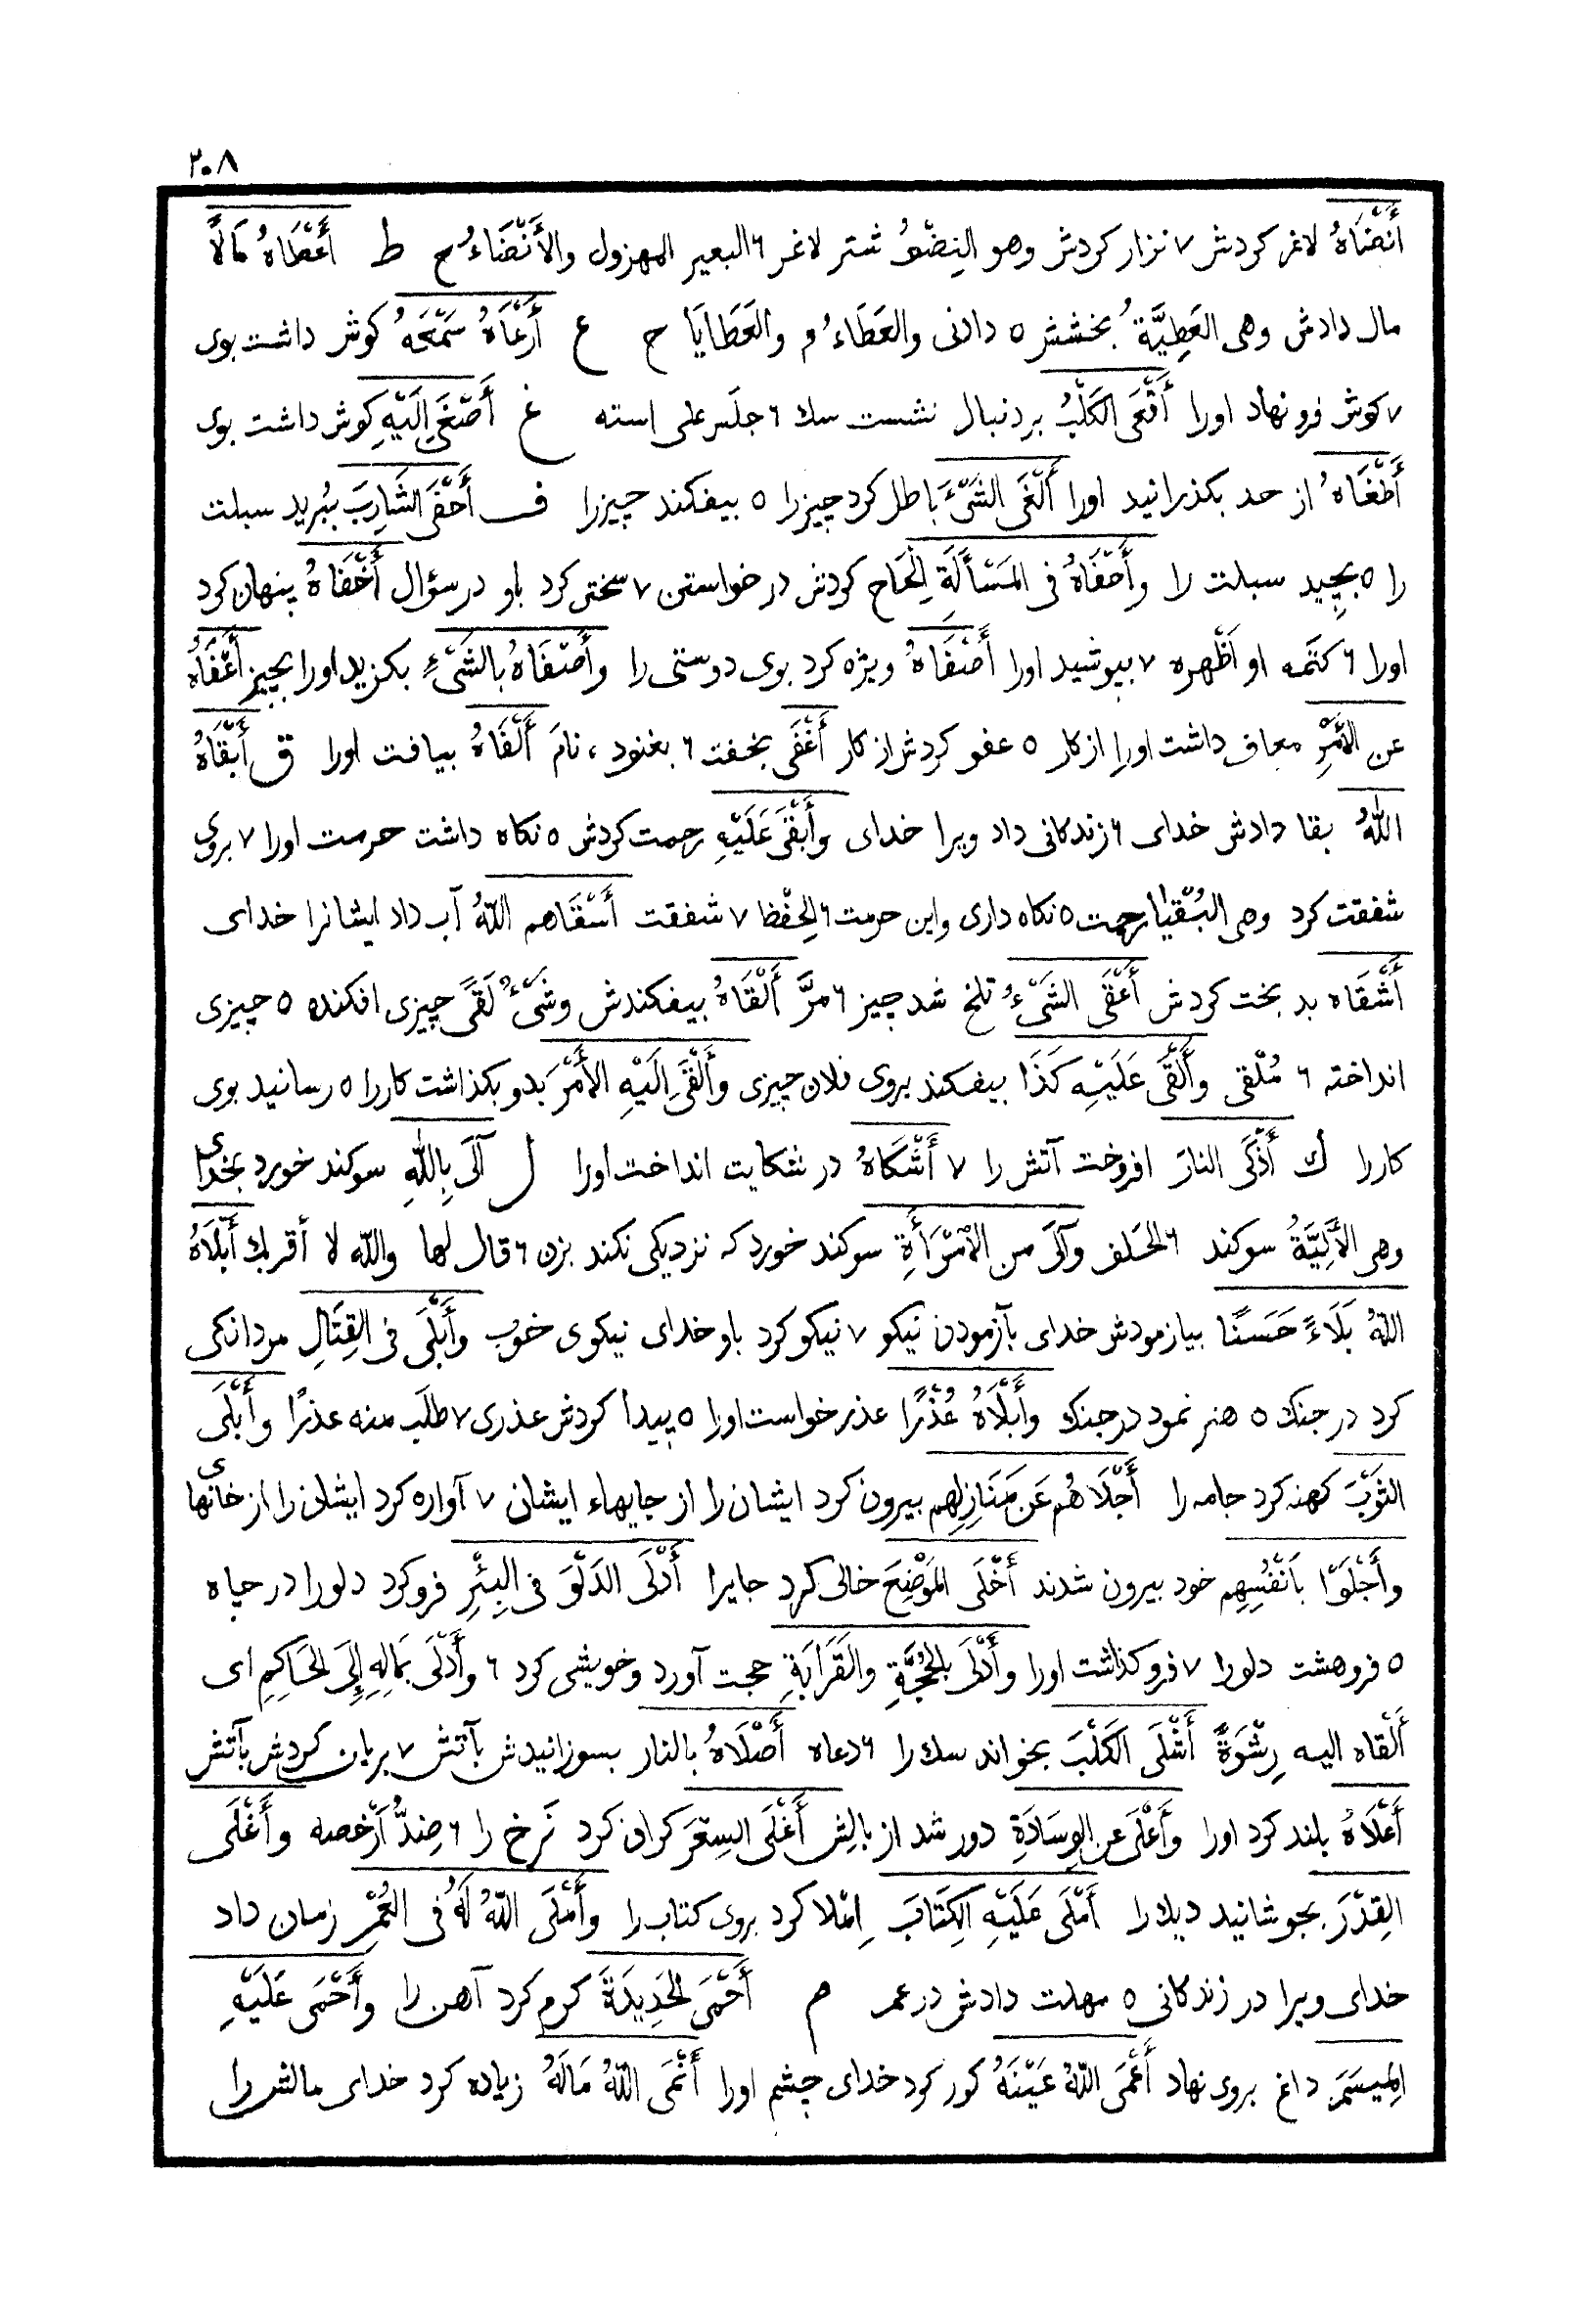 ٣٠٨
أَنْضَاهُ لاغر كردش ٧ نزار كردش وهو النِضْوُ شتر لاغر ٦ البعير المهزول والأَنْضَاءُ ج ط أَعْطَاهُ مَالًا
مال دادش وهى العَطِيَّةُ بخشش ٥ دادنى والعَطَاءُ م والعَطَايَا ج ع أَرْعَاهُ سَمْعَهُ كوش داشت بوى
٧ كوش فرو نهاد اورا أَقْعَى الكَلْبُ بر دنبال نشست سك ٦ جلَس على استه غ أَصْغَى إِلَيْهِ كوش داشت بوى
أَطْغَاهُ از حد بكذرانيد اورا أَلْغَى الشَىْءَ باطل كرد چيزرا ٥ بيفكند چيزرا ف أَحْفَى الشَارِبَ ببُريد سبلت
را ٥ بچيد سبلت را وأَحْفَاهُ فى المَسْأَلَةِ إِلْحَاح كردش در خواستن ٧ سختى كرد باو در سؤال أَخْفَاهُ پنهان كرد
اورا ٦ كتَمه او أظْهره ٧ بپوشيد اورا أَصْفَاهُ ويژه كرد بوى دوستى را وأَصْفَاهُ بالشَىْءِ بكزيد اورا بچيز أَعْفَاهُ
عن الأَمْرِ معاف داشت اورا از كار ٥ عفو كردش از كار أَغْفَى بخفت ٦ بغنود ، نامَ أَلْفَاهُ بيافت اورا ق أَبْقَاهُ
اللهُ بقا دادش خداى ٦ زندكانى داد ويرا خداى وأَبْقَى عَلَيْهِ رحمت كردش ٥ نكاه داشت حرمت اورا ٧ بروى
شفقت كرد وهى البُقْيَا رحمت ٥ نكاه دارى واين حرمت ٦ الحِفْظ ٧ شفقت أَسْقَاهم اللهُ آب داد ايشانرا خداى
أَشْقَاه بد بخت كردش أَعْقَى الشَىْءُ تلخ شد چيز ٦ مرَّ أَلْقَاهُ بيفكندش وشَىْءٌ لَقًى چيزى افكنده ٥ چيزى
انداخته ٦ مُلْقى وأَلْقَى عَلَيْهِ كَذَا بيفكند بروى فلان چيزى وأَلْقَى إِلَيْهِ الأَمْرَ بدو بكذاشت كاررا ٥ رسانيد بوى
كاررا ك أَذْكَى النارَ افروخت آتش را ٧ أَشْكَاهُ در شكايت انداخت اورا ل آلَى بِاللهِ سوكند خورد بخداى
وهى الأَلِيَّةُ سوكند ٦ الحَلف وآلَى من الاْمْرَأَةِ سوكند خورد كه نزديكى نكند بزن ٦ قال لها والله لا أقربك أَبْلَاهُ
اللهُ بَلَاءً حَسَنًا بيازمودش خداى بآزمودن نيكو ٧ نيكو كرد باو خداى نيكوى خوب وأَبْلَى فى القِتَالِ مردانكى
كرد در جنك ٥ هنر نمود در جنك وأَبْلَاهُ عُذْرًا عذر خواست اورا ٥ پيدا كردش عذرى ٧ طلَب منه عذرًا وأَبْلَى
الثَوْبَ كهنه كرد جامه را أَجْلَاهُم عَن مَنَازِلِهِم بيرون كرد ايشان را از جايهاء ايشان ٧ آواره كرد ايشان را از خانهاى
وأَجْلَوْا بأَنْفُسِهِم خود بيرون شدند أَخْلَى المَوْضِعَ خالى كرد جايرا أَدْلَى الدَلْوَ فى البِئْرِ فرو كرد دلورا در چاه
٥ فروهشت دلورا ٧ فرو كذاشت اورا وأَدْلَى بالحُجَّةِ والقَرَابَةِ حجت آورد وخويشى كرد ٦ وأَدْلَى بِمَالِهِ إِلَى الحَاكِمِ اى
أَلْقاه اليه رِشْوَةً أَشْلَى الكَلْبَ بخواند سك را ٦ دعاه أَصْلَاهُ بالنار بسوزانيدش بآتش ٧ بريان كردش بآتش
أَعْلَاهُ بلند كرد اورا وأَعْلَى عن الوِسَادَةِ دور شد از بالِش أَغْلَى السِعْرَ كران كرد نَرخ را ٦ ضِدُّ أَرْخصه وأَغْلَى
القِدْرَ بجوشانيد ديك را أَمْلَى عَلَيْهِ الكِتَابَ اِمْلا كرد بروى كتاب را وأَمْلَى اللهُ لَهُ فى العُمْرِ زمان داد
خداى ويرا در زندكانى ٥ مهلت دادش در عمر م أَحْمَى الحَدِيدَةَ كرم كرد آهن را وأَحْمَى عَلَيْهِ
المِيسَمَ داغ بروى نهاد أَعْمَى اللهُ عَيْنَهُ كور كرد خداى چشم اورا أَنْمَى اللهُ مَالَهُ زياده كرد خداى مالش را